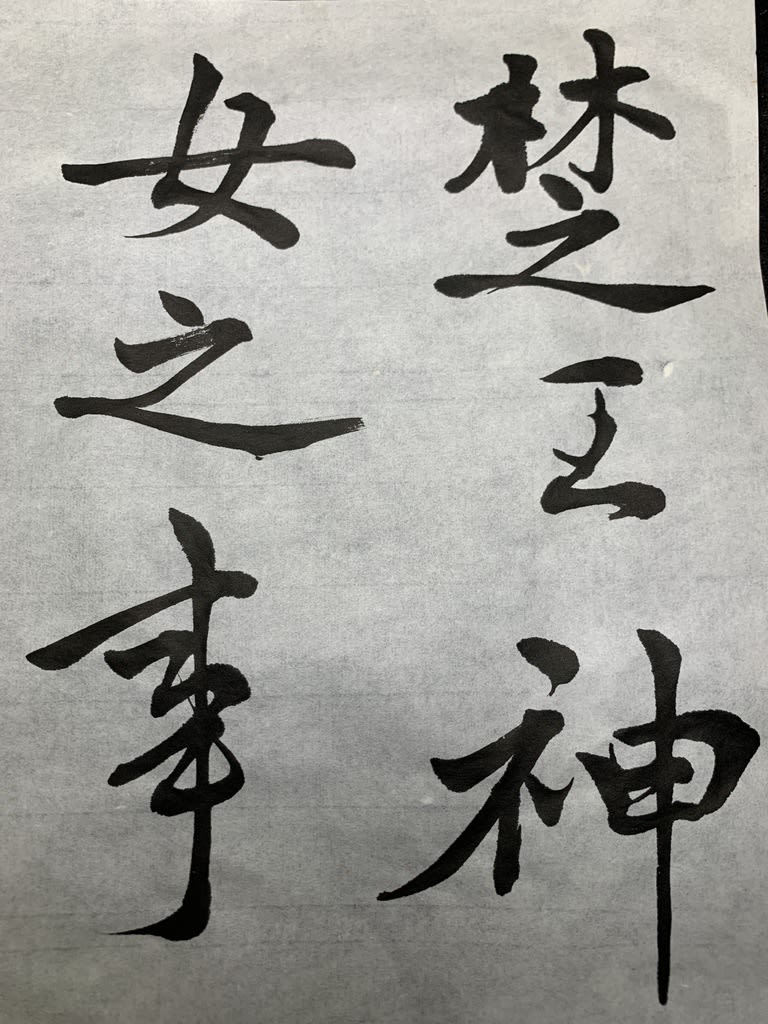 楚王神
女之事